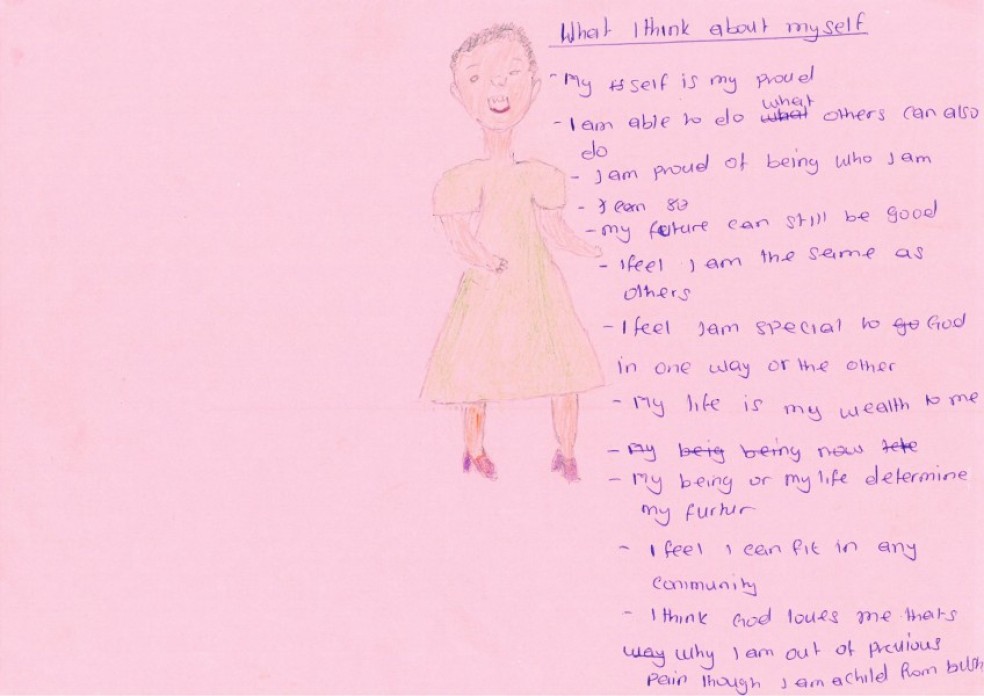 What I think about myself
- My is self is my proud
- I am able to do what what others can also
do
- I am proud of being who I am
- I can so
- my future can still be good
- I feel I am the same as
others
- I feel I am special to go God
in one way or the other
- My life is my wealth to me
- My beig being now
- My being or my life determine
my furtur
- I feel I can fit in any
community
- I think God loves me thats
way why I am out of previous
pain though I am a child from bush